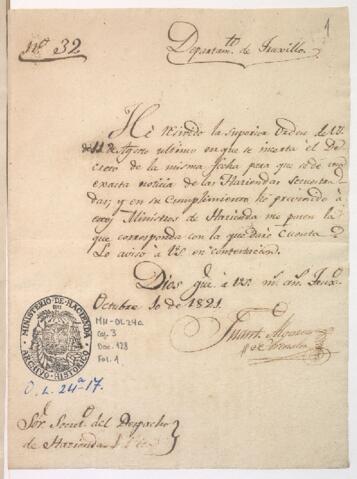 1
N.º 32
Departam.to de Truxillo
He recivido la superior orden de V.S.
de 11 de Agosto ultimo en que se inserta el De
creto de la misma fecha para que se dé una
exacta noticia de las Haciendas secuestra
das; y en su cumplimiento he prevenido á
estos Ministros de Hazienda me pasen la
que corresponda con la que daré cuenta
Lo aviso á V.S. en contestacion.
Dios gue. á V.S. m. an. Trux.º
Octubre 10 de 1821.
MINISTERIO-DE-HACIENDA
ARCHIVO-HISTORICO
MH-OL 24a
Caj. 3
Doc. 128
Fol. 1
O. L. 24ª-17.
Sor. Secret.º del Despacho
de Hazienda